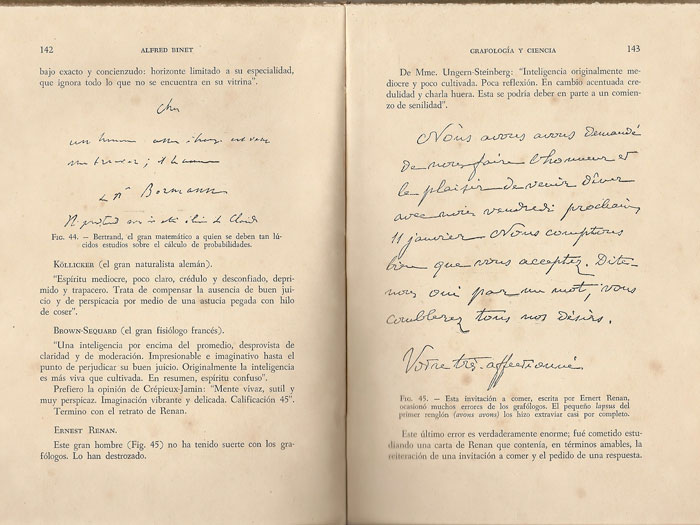 142 ALFRED BINET
bajo exacto y concienzudo: horizonte limitado a su especialidad,
que ignora todo lo que no se encuentra en su vitrina".
Bormann
FIG. 44. — Bertrand, el gran matemático a quien se deben tan lú-
cidos estudios sobre el cálculo de probabilidades.
KÖLLICKER (el gran naturalista alemán).
"Espíritu mediocre, poco claro, crédulo y desconfiado, depri-
mido y trapacero. Trata de compensar la ausencia de buen jui-
cio y de perspicacia por medio de una astucia pegada con hilo
de coser".
BROWN-SEQUARD (el gran fisiólogo francés).
"Una inteligencia por encima del promedio, desprovista de
claridad y de moderación. Impresionable e imaginativo hasta el
punto de perjudicar su buen juicio. Originalmente la inteligencia
es más viva que cultivada. En resumen, espíritu confuso".
Prefiero la opinión de Crépieux-Jamin: "Mente vivaz, sutil y
muy perspicaz. Imaginación vibrante y delicada. Calificación 45".
Termino con el retrato de Renan.
ERNEST RENAN.
Este gran hombre (Fig. 45) no ha tenido suerte con los gra-
fólogos. Lo han destrozado.
GRAFOLOGÍA Y CIENCIA 143
De Mme. Ungern-Steinberg: "Inteligencia originalmente me-
diocre y poco cultivada. Poca reflexión. En cambio acentuada cre-
dulidad y charla huera. Esta se podría deber en parte a un comien-
zo de senilidad".
Nous avons avons demandé
de nous faire l'honneur et
le plaisir de venir dîner
avec nous vendredi prochain,
11 janvier. Nous comptons
bien que vous acceptez. Dites-
nous oui par un mot, vous
comblerez tous nos désirs.
Votre très affectionné
FIG. 45. — Esta invitación a comer, escrita por Ernert Renan,
ocasionó muchos errores de los grafólogos. El pequeño lapsus del
primer renglón (avons avons) los hizo extraviar casi por completo.
Este último error es verdaderamente enorme; fué cometido estu-
diando una carta de Renan que contenía, en términos amables, la
reiteración de una invitación a comer y el pedido de una respuesta.